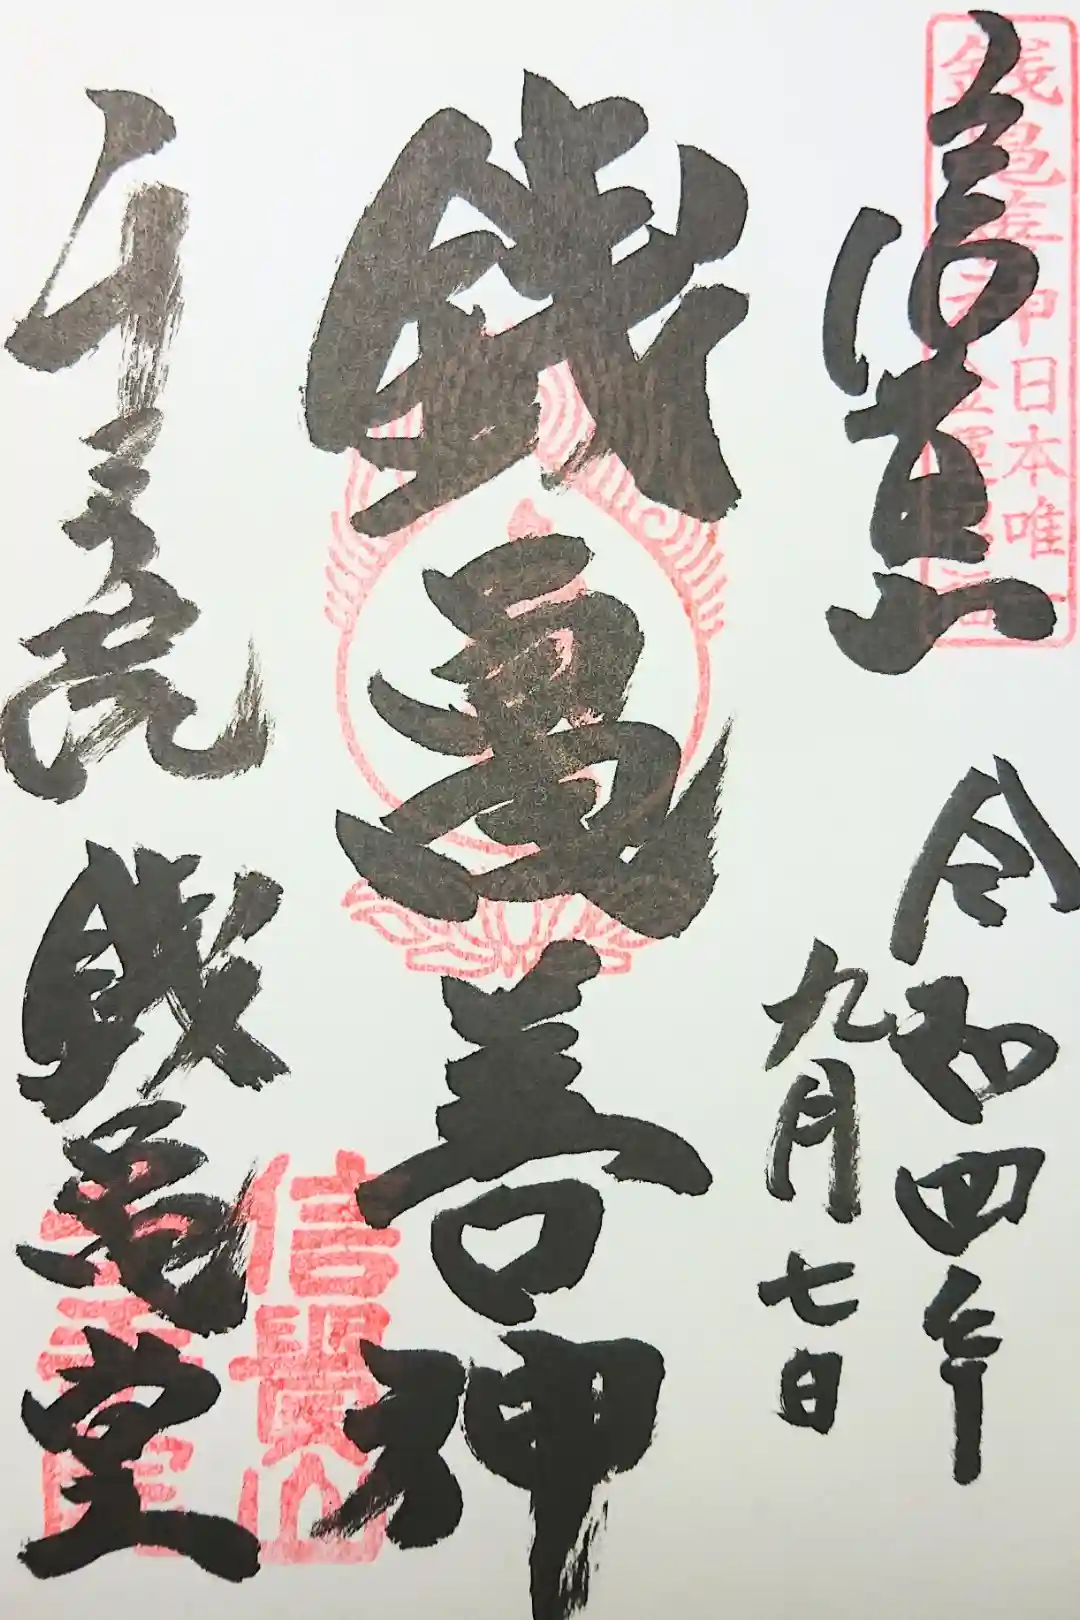 銭亀善神
日本唯一
信貴山
令和四年
九月七日
銭亀善神
千手院
銭亀堂
信貴山
千手院